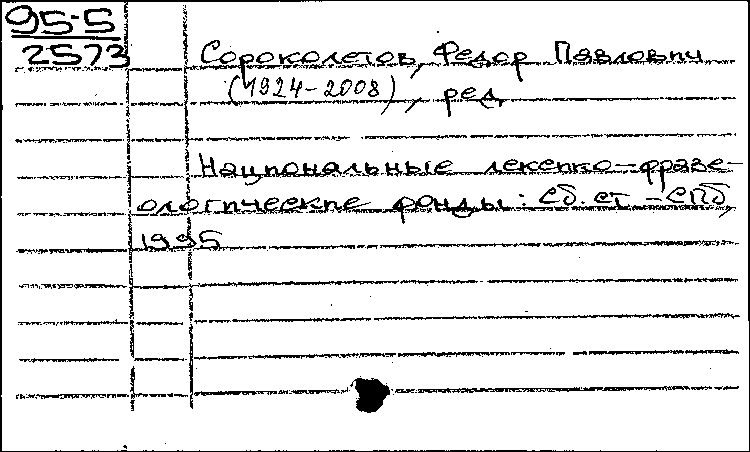 95-5
2573
Сороколетов, Федор Павлович
(1924-2008), ред
Национальные лексико-фразе-
ологические фонды: Сб. ст - СПб,
1995